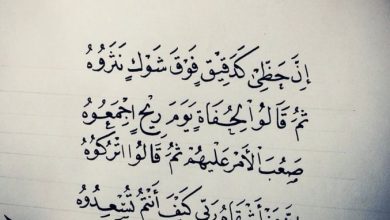 إِنَّ حَظِّي كَدَقِيقٍ فَوْقَ شَوْكٍ نَثَرُوهُ
ثُمَّ قَالُوا لِحُفَاةٍ يَوْمَ رِيحٍ اجْمَعُوهُ
صَعُبَ الْأَمْرُ عَلَيْهِمْ ثُمَّ قَالُوا اتْرُكُوهُ
أَشْقَاهُ رَبِّي كَيْفَ أَنْتُمْ تُسْعِدُوهُ